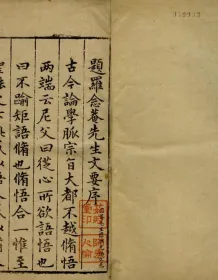 題羅念菴先生文要序
古今論學脈宗旨大都不越脩悟
兩端云尼父曰從心所欲語悟也
曰不踰矩語脩也脩悟合一惟至